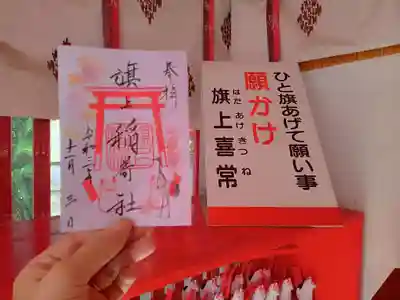 奉拝
旗上稲荷社
十一月三日
ひと旗あげて願い事
願かけ
はた あげ きつ ね
旗上喜常